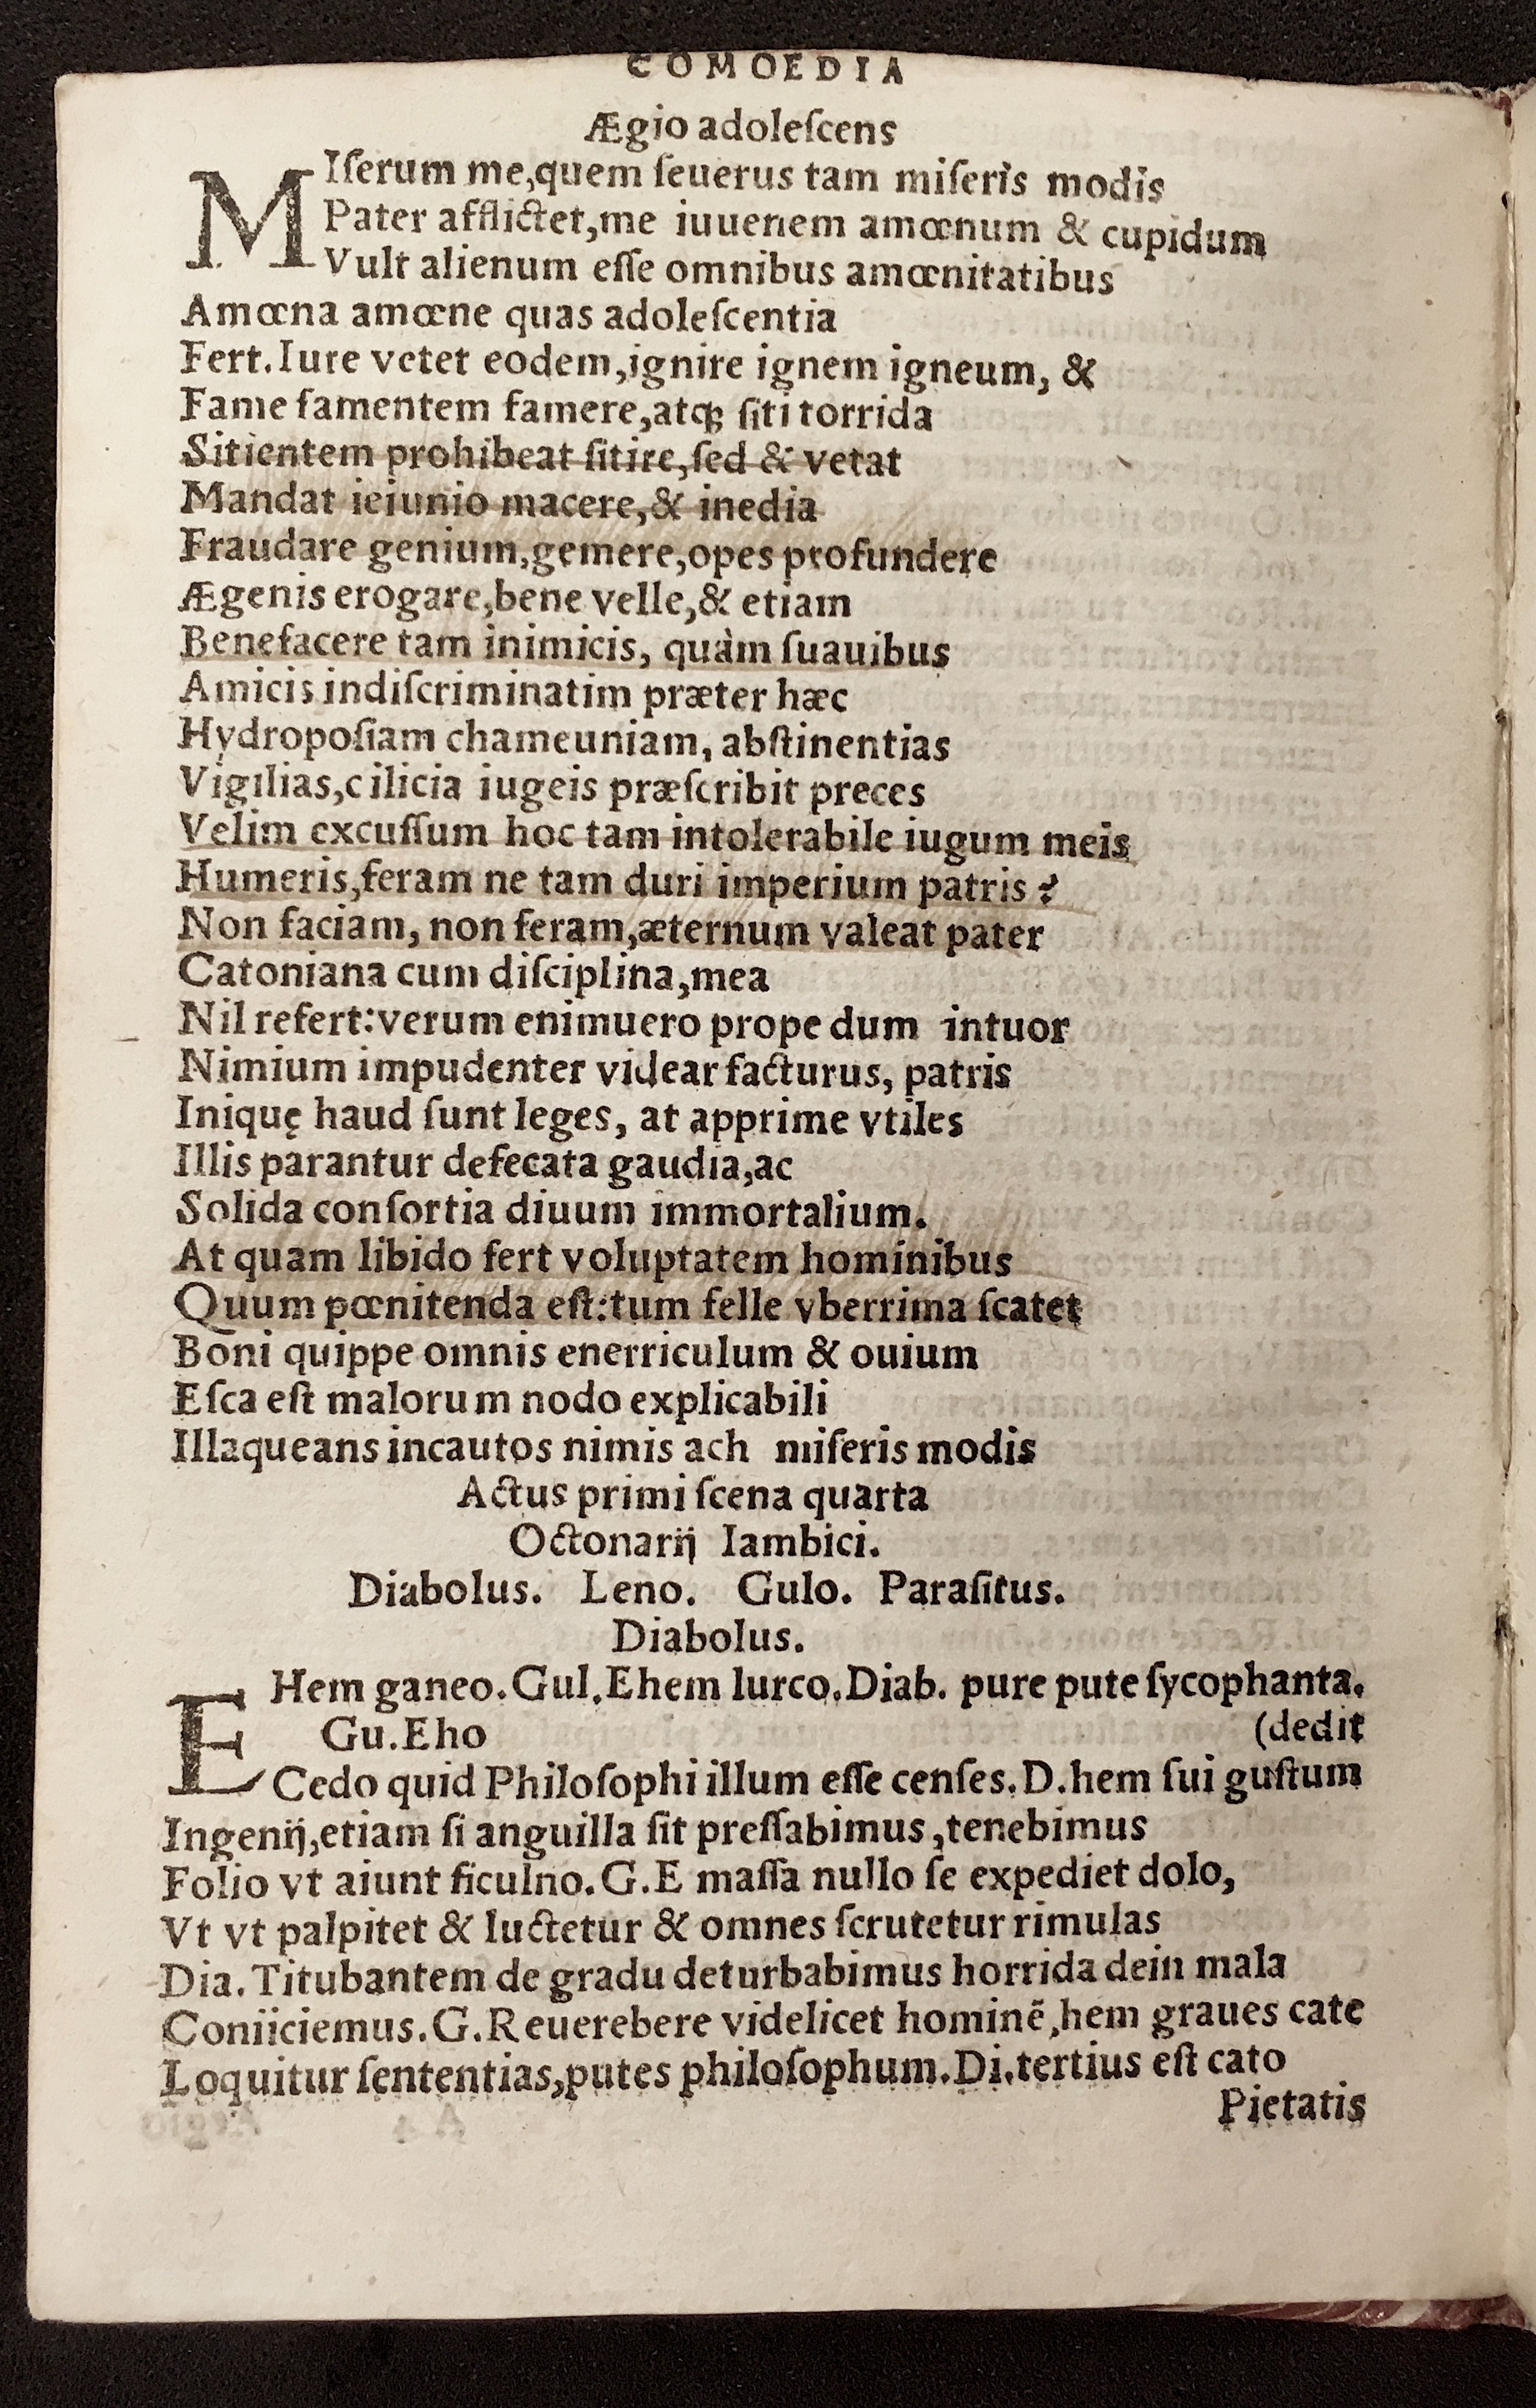 COMOEDIA
Ægio adoleſcens
MIſerum me,quem ſeuerus tam miſerìs modis
Pater afflictet,me iuuenem amœnum & cupidum
Vult alienum eſſe omnibus amœnitatibus
Amœna amœne quas adoleſcentia
Fert.Iure vetet eodem,ignire ignem igneum, &
Fame famentem famere,atq; ſiti torrida
Sitientem prohibeat ſitire,ſed & vetat
Mandat ieiunio macere,& inedia
Fraudare genium,gemere,opes profundere
Ægenis erogare,bene velle,& etiam
Benefacere tam inimicis, quàm ſuauibus
Amicis indiſcriminatim præter hæc
Hydropoſiam chameuniam, abſtinentias
Vigilias,cilicia iugeis præſcribit preces
Velim excuſſum hoc tam intolerabile iugum meis
Humeris,feram ne tam duri imperium patris ?
Non faciam, non feram,æternum valeat pater
Catoniana cum diſciplina,mea
Nil refert:verum enimuero prope dum intuor
Nimium impudenter videar facturus, patris
Iniquę haud ſunt leges, at apprime vtiles
Illis parantur defecata gaudia,ac
Solida conſortia diuum immortalium.
At quam libido fert voluptatem hominibus
Quum pœnitenda eſt:tum felle vberrima ſcatet
Boni quippe omnis enerriculum & ouium
Eſca eſt malorum nodo explicabili
Illaqueans incautos nimis ach miſeris modis
Actus primi ſcena quarta
Octonarij Iambici.
Diabolus. Leno. Gulo. Paraſitus.
Diabolus.
EHem ganeo.Gul.Ehem lurco.Diab. pure pute ſycophanta.
Gu.Eho (dedit
Cedo quid Philoſophi illum eſſe cenſes.D.hem ſui guſtum
Ingenij,etiam ſi anguilla ſit preſſabimus,tenebimus
Folio vt aiunt ficulno.G.E maſſa nullo ſe expediet dolo,
Vt vt palpitet & luctetur & omnes ſcrutetur rimulas
Dia.Titubantem de gradu deturbabimus horrida dein mala
Coniiciemus.G.Reuerebere videlicet hominē,hem graues cate
Loquitur ſententias,putes philoſophum.Di.tertius eſt cato
Pietatis